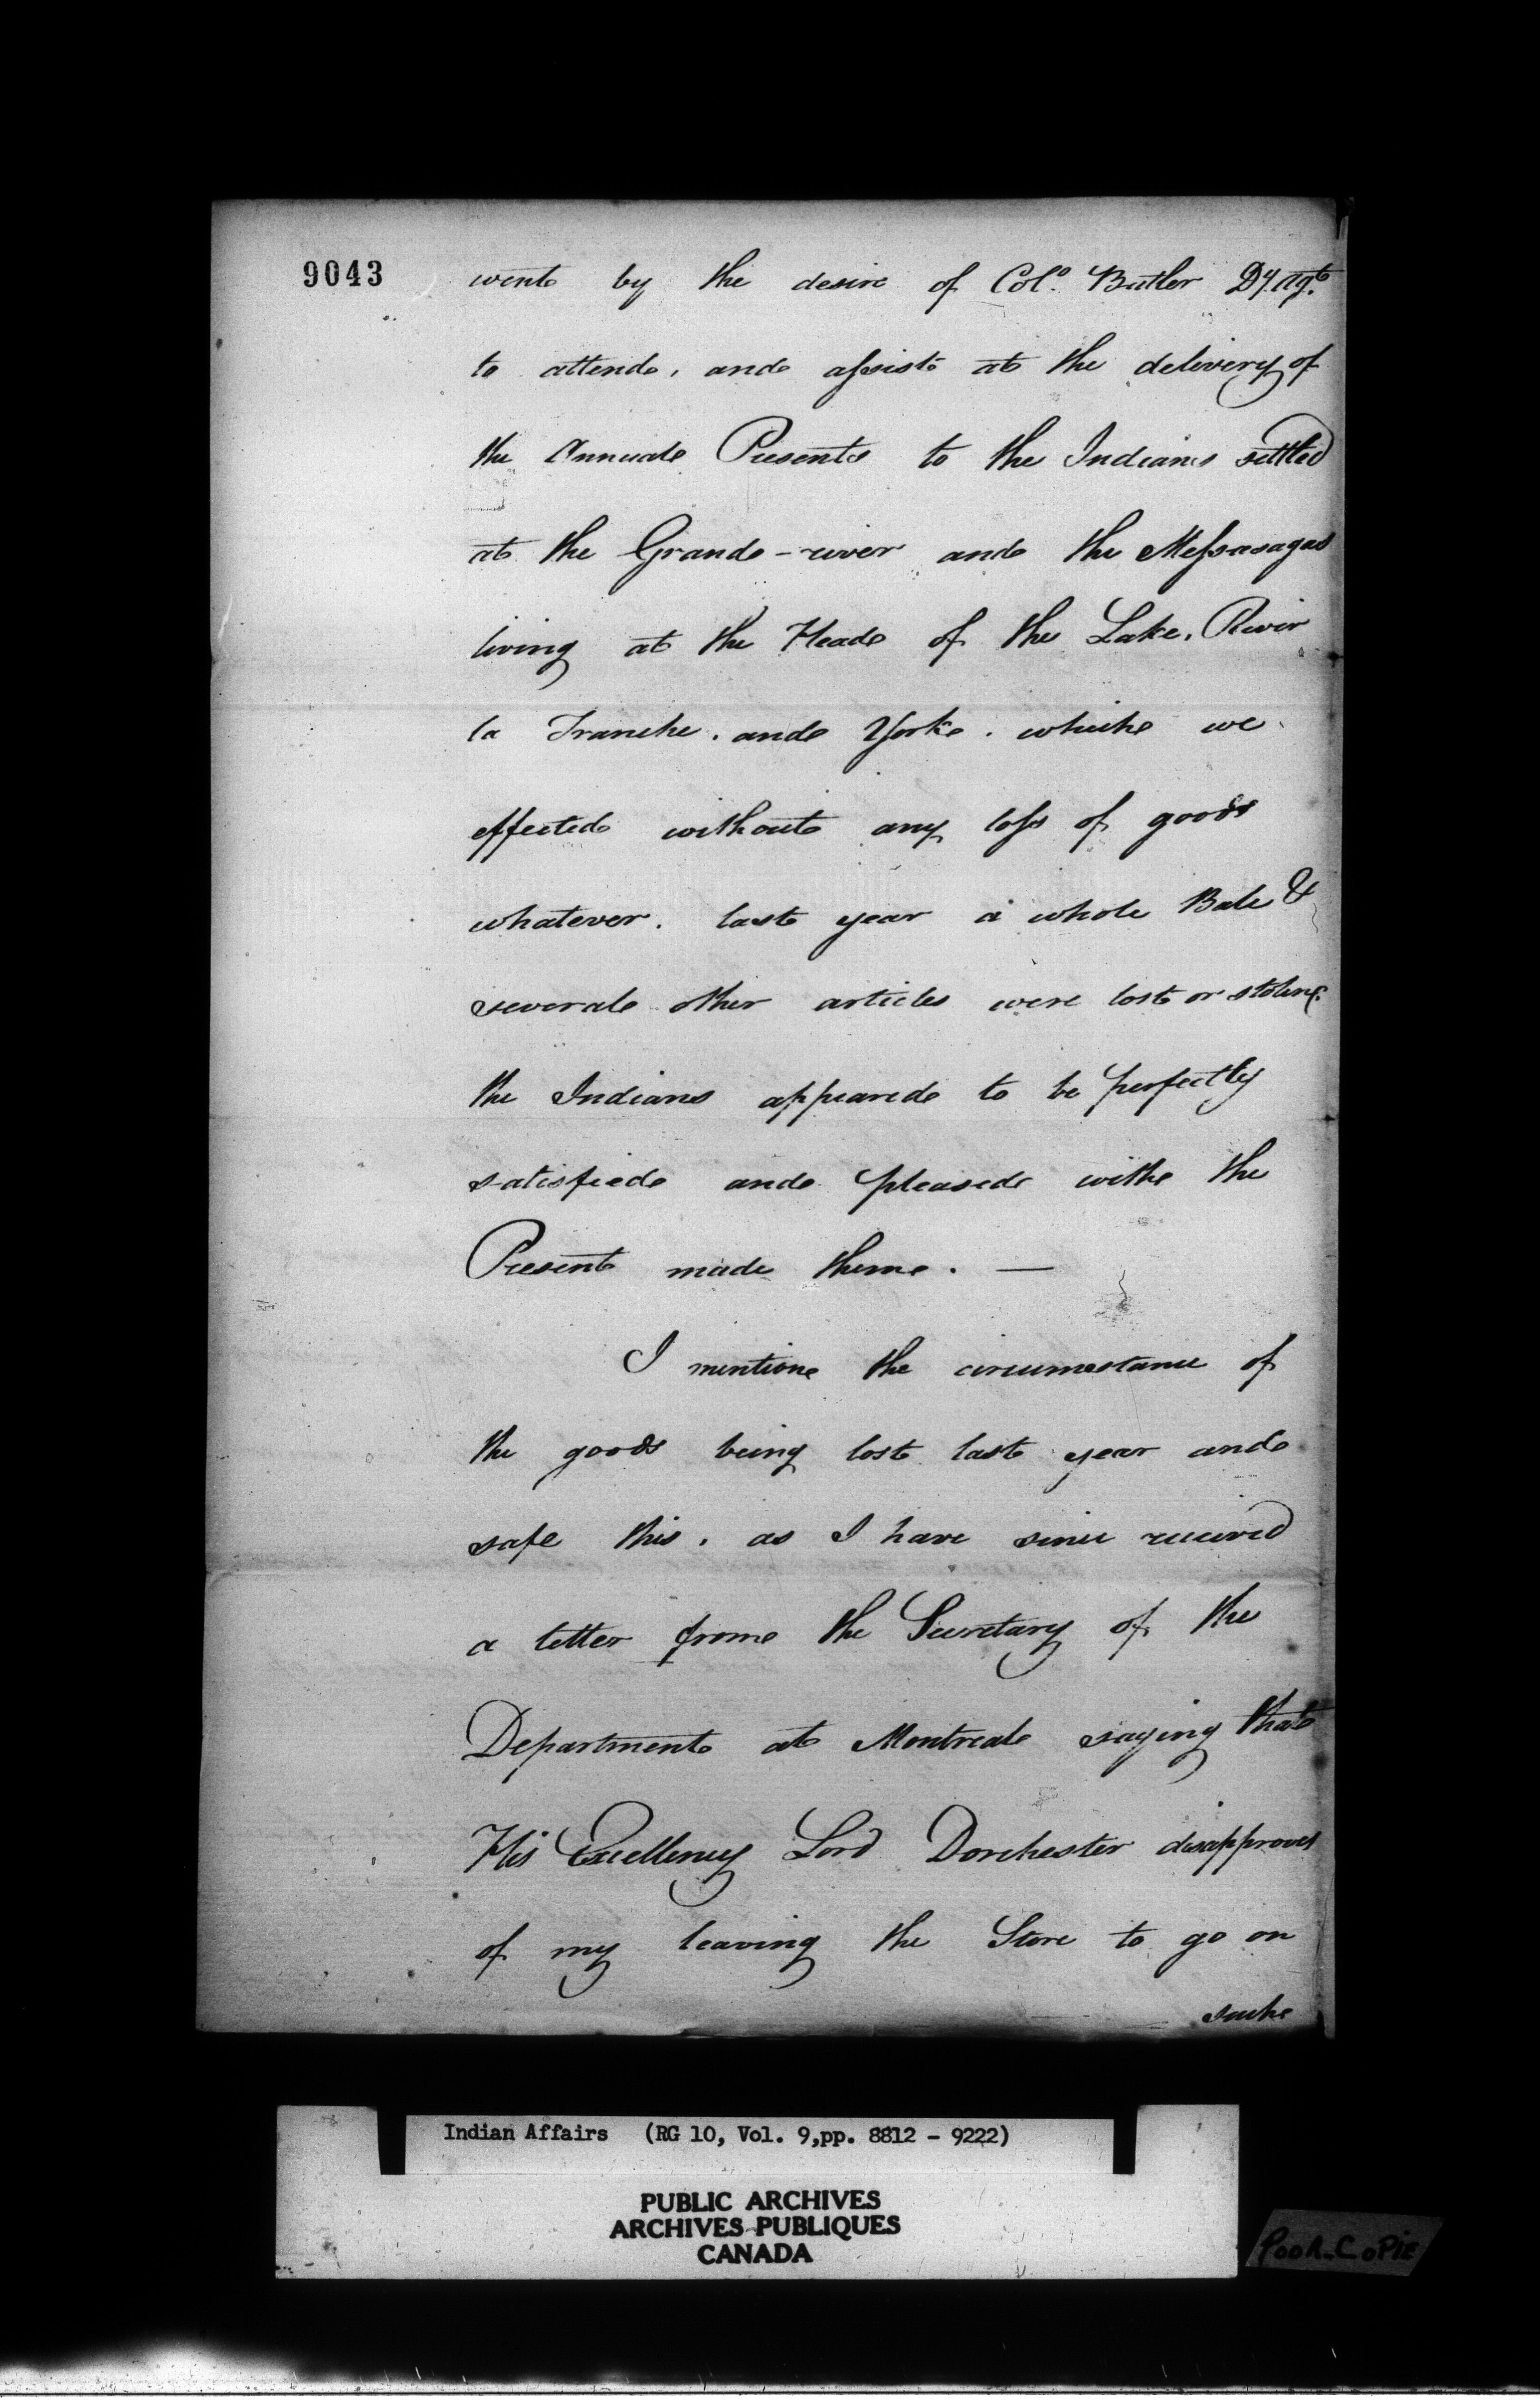 9043
went by the desire of Colº. Butler Dy. Agt.
to attend, and assist at the delivery of
the Annual Presents to the Indians settled
at the Grand-river and the Messasagas
living at the Head of the Lake, River
la Tranche, and York. which we
effected without any loss of goods
whatever. last year a whole Bale &
several other articles were lost or stolen.
the Indians appeared to be perfectly
satisfied and pleased with the
Present made them. —
I mention the circumstance of
the goods being lost last year and
safe this, as I have since received
a letter from the Secretary of the
Department at Montreal saying that
His Excellency Lord Dorchester disapproves
of my leaving the Store to go on
such
Indian Affairs (RG 10, Vol. 9,pp. 8812 - 9222)
PUBLIC ARCHIVES
ARCHIVES PUBLIQUES
CANADA
POOR COPIE